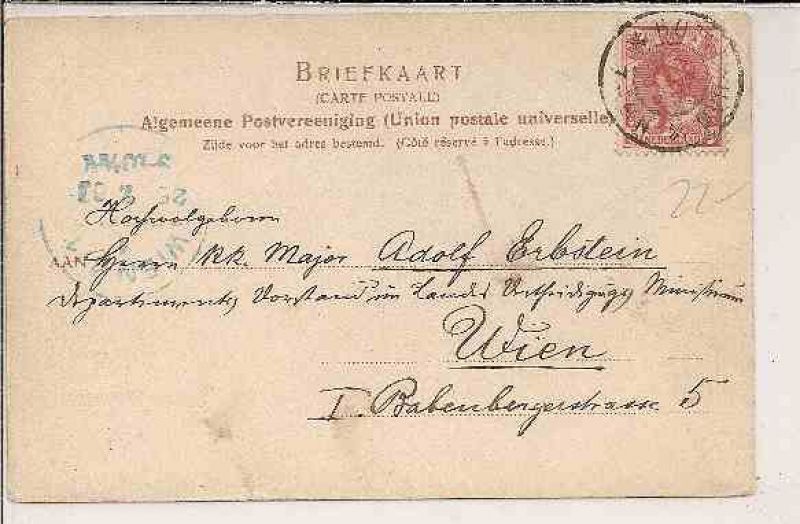 BRIEFKAART
(CARTE POSTALE)
Algemeene Postvereeniging (Union postale universelle)
Zijde voor het adres bestemd. (Côté réservé à l'adresse.)
22-
Hochwolgeboren
AAN Herrn kk. Major Adolf Erbstein
Departements Vorstand im Landes Vertheidigungs Ministerium
Wien
I. Babenbergerstrasse 5